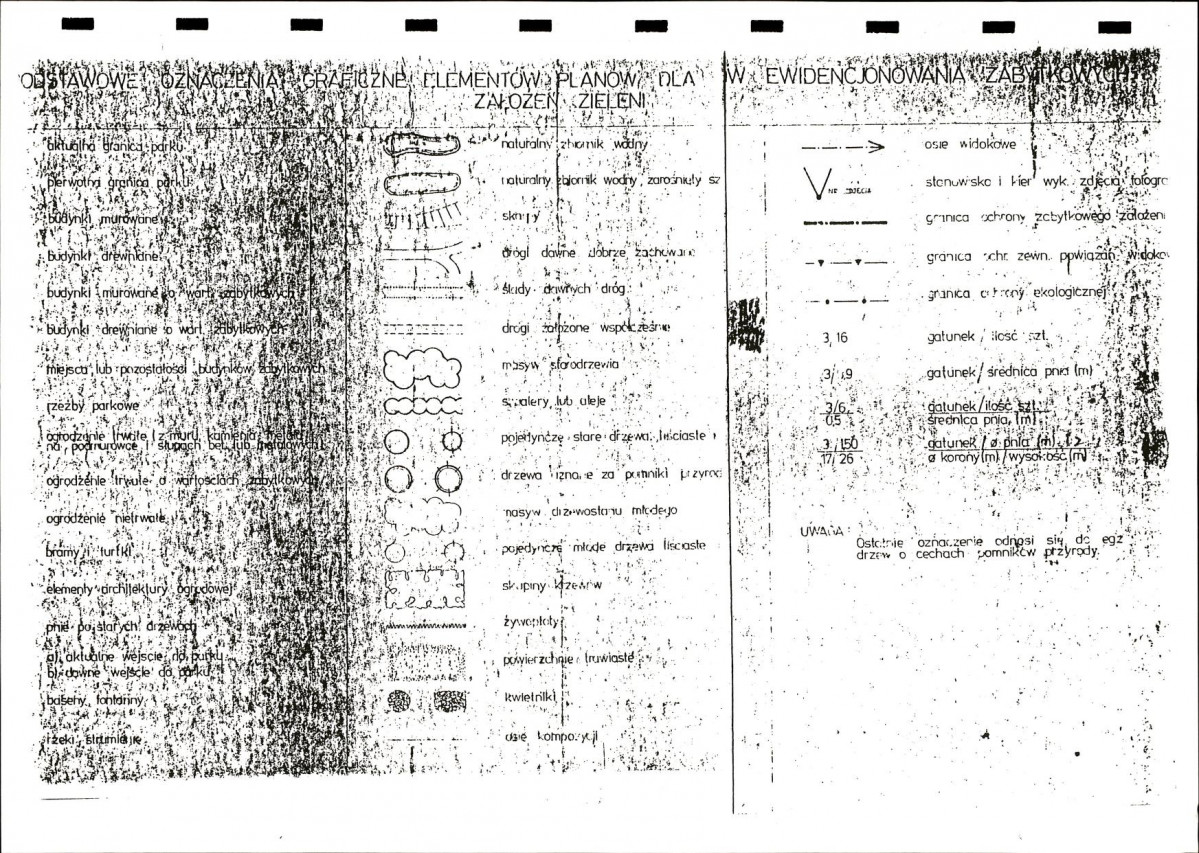 ODSTAWOWE OZNACZENIA GRAFICZNE ELEMENTÓW PLANÓW DLA W EWIDENCJONOWANIA ZABYTKOWYCH
ZAŁOŻEŃ ZIELENI
aktualna granica parku
pierwotna granica parku
budynki murowane
budynki drewniane
budynki murowane o wart. zabytkowych
budynki drewniane o wart. zabytkowych
miejsca lub pozostałości budynków zabytkowych
rzeźby parkowe
ogrodzenie trwałe (z muru, kamienia, metalu
na podmurówce i słupach bet. lub metalowych)
ogrodzenie trwałe o wartościach zabytkowych
ogrodzenie nietrwałe
bramy i furtki
elementy architektury ogrodowej
pnie po starych drzewach
a) aktualne wejście do parku
b) dawne wejście do parku
baseny, fontanny
rzeki, strumienie
naturalny zbiornik wodny
naturalny zbiornik wodny, zarośnięty sz
skarpy
drogi dawne dobrze zachowane
ślady dawnych dróg
drogi założone współcześnie
masyw starodrzewia
szpalery lub aleje
pojedyncze stare drzewa: liściaste i
drzewa uznane za pomniki przyrod
masyw drzewostanu młodego
pojedyncze młode drzewa liściaste
skupiny krzewów
żywopłoty
powierzchnie trawiaste
kwietniki
osie kompozycji
osie widokowe
NR ZDJĘCIA
stanowisko i kier. wyk. zdjęcia fotogra
granica ochrony zabytkowego założeni
granica ochr. zewn. powiązań widoko
granica ochrony ekologicznej
3, 16 gatunek / ilość szt.
gatunek / średnica pnia (m)
3/6 gatunek/ilość szt.
0,5 średnica pnia, (m)
3 150 gatunek / ø pnia (m)
17/26 ø korony(m)/wysokość(m)
UWAGA:
Ostatnie oznaczenie odnosi się do egz
drzew o cechach pomników przyrody.